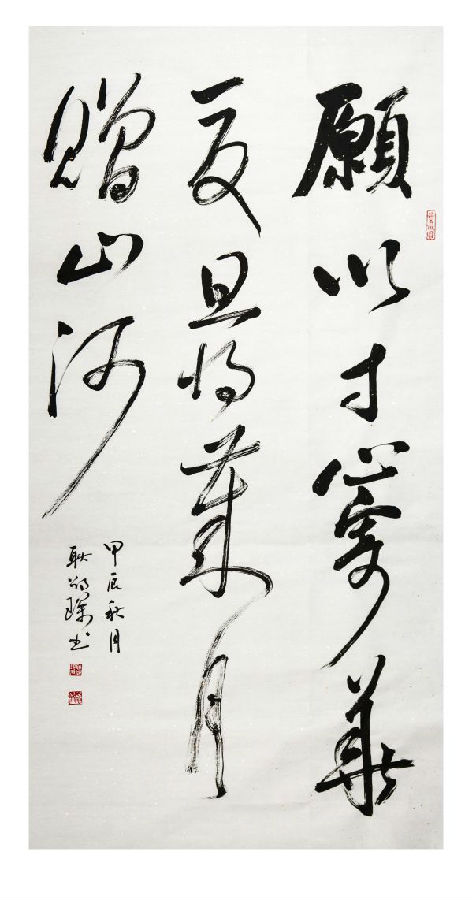 願以寸心寄華
夏且將歲月
贈山河
甲辰秋月
耿 琛书